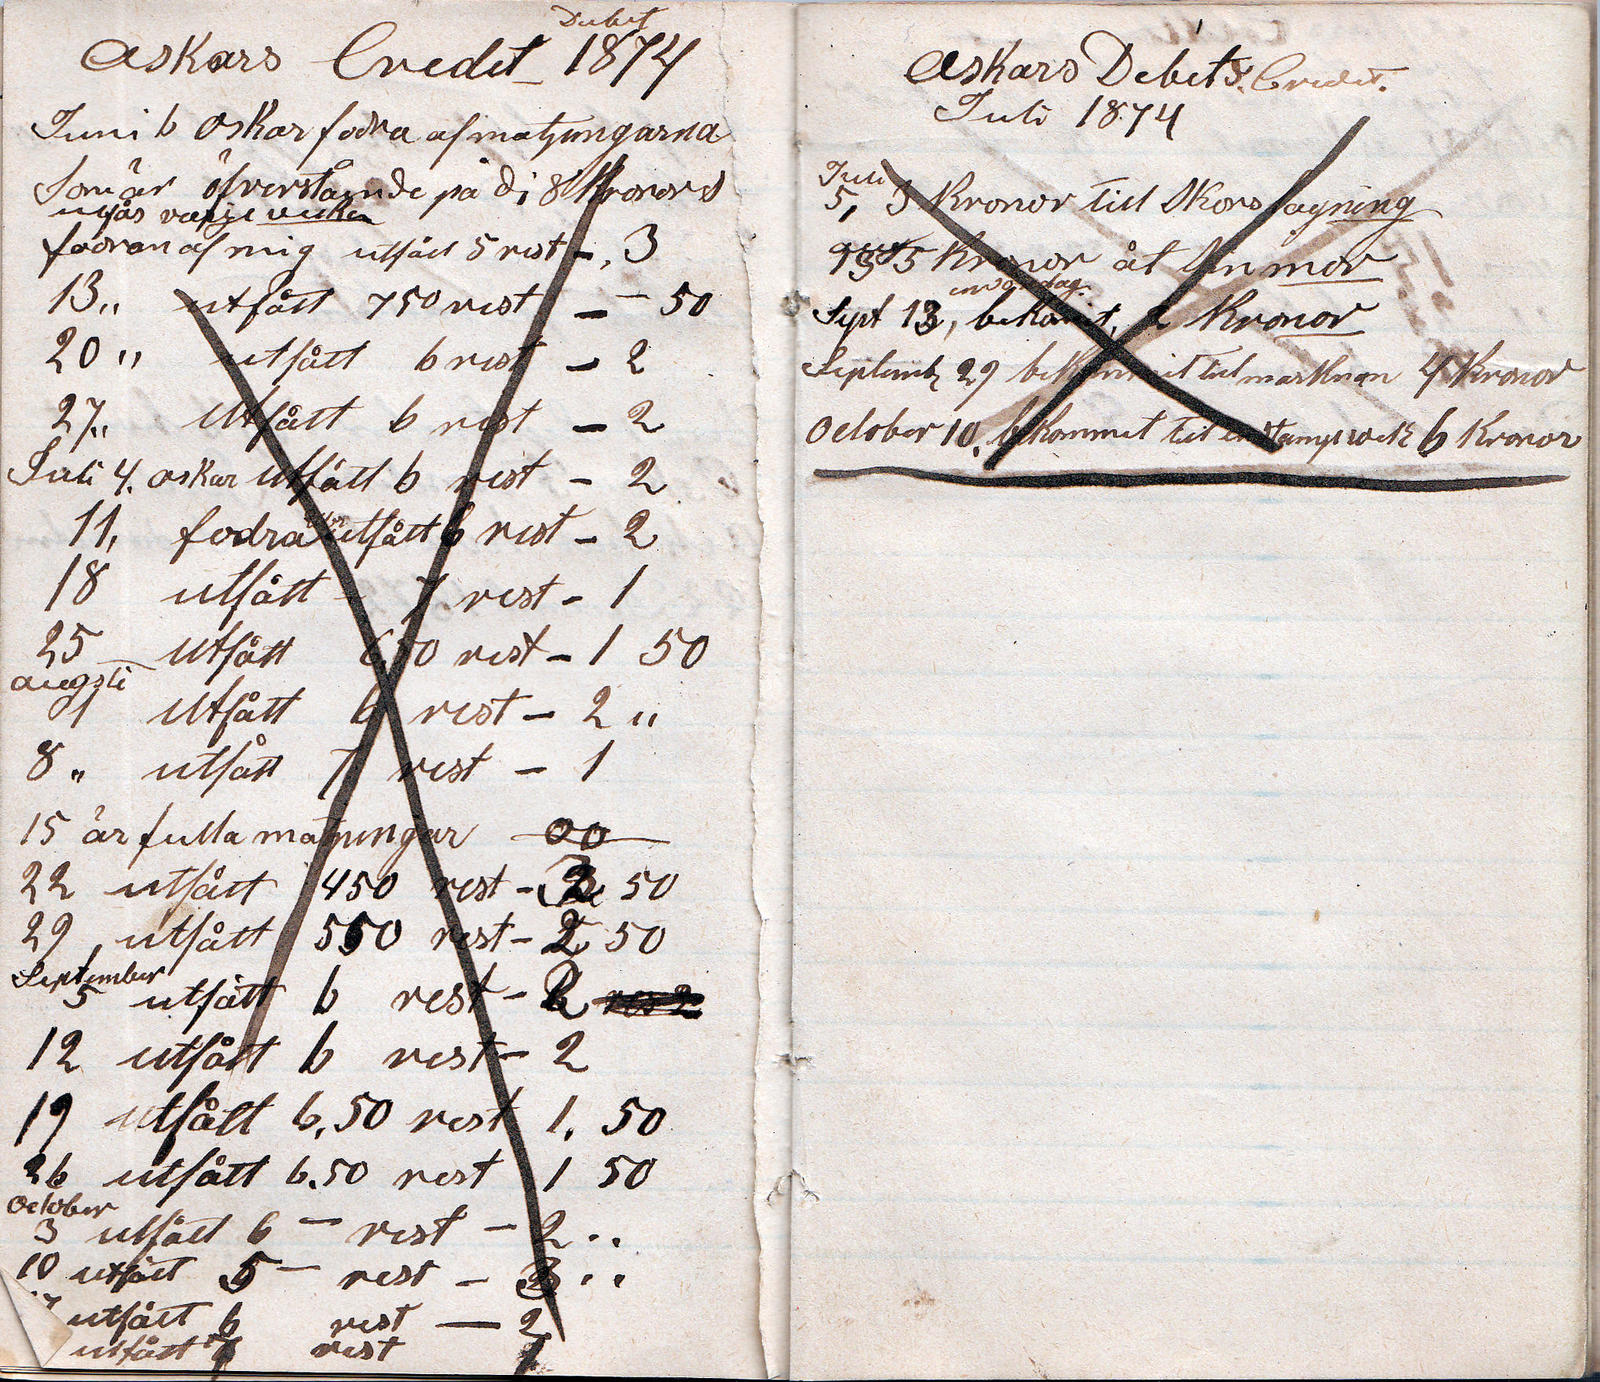 Debet
Askars Credet 1874
Juni 6 Oskar fodra af matjungarna
Som är öfverstående på di 8 Kronor
utgår varje vecka
fodran af mig utfått 5 rest -, 3
13 " utfått 7 50 rest - - 50
20 " utfått 6 rest - 2
27 " utfått 6 rest - 2
Juli 4. oskar utfått 6 rest - 2
11, fodra utfått 6 rest - 2
18 utfått - 7 rest - 1
25 utfått 6,50 rest - 1 50
augsti
1 utfått 6 rest - 2 "
8 " utfått 7 rest - 1
15 är fulla matningar 00
22 utfått 4 50 rest - 3 50
29, utfått 5 50 rest - 2 50
September
5 utfått 6 rest - 2
12 utfått 6 rest - 2
19 utfått 6,50 rest 1, 50
26 utfått 6.50 rest 1 50
October
3 utfått 6 - rest - 2 ..
10 utfått 5 - rest - 3 ..
utfått 6 rest - 2
utfått 7 rest 1
Askars Debets. Credet.
Juli 1874
Juli
5, 3 Kronor till Skors lagning
5 Kronor åt Din mor
Sept 13, bekomit, 2 Kronor
Septemb 29 bekommit til marknan 4 Kronor
October 10, bekommet til en 6 Kronor